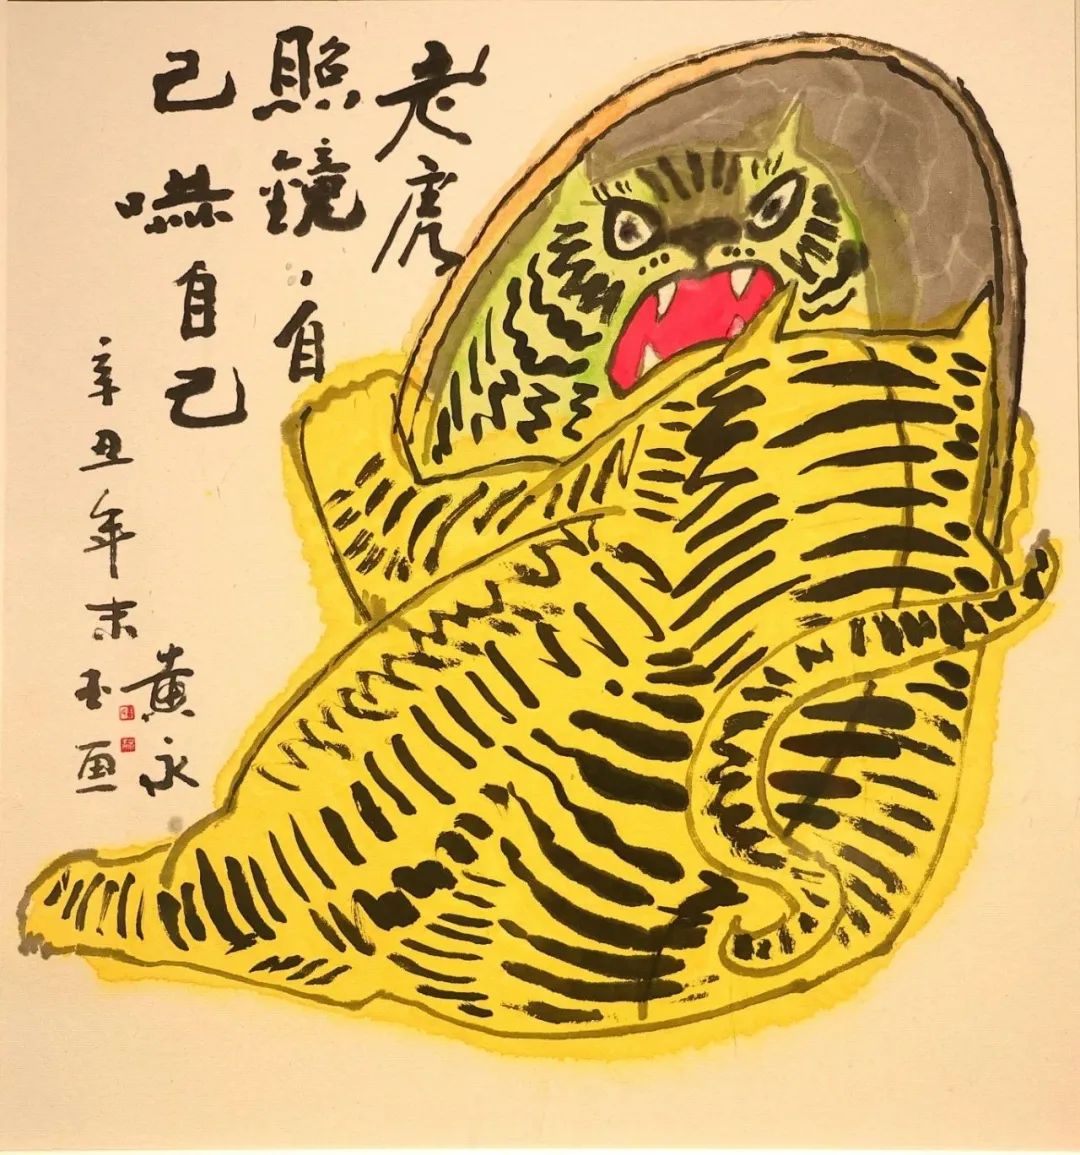 老虎
照鏡，自
己嚇自己
辛丑年末
黄永
玉画